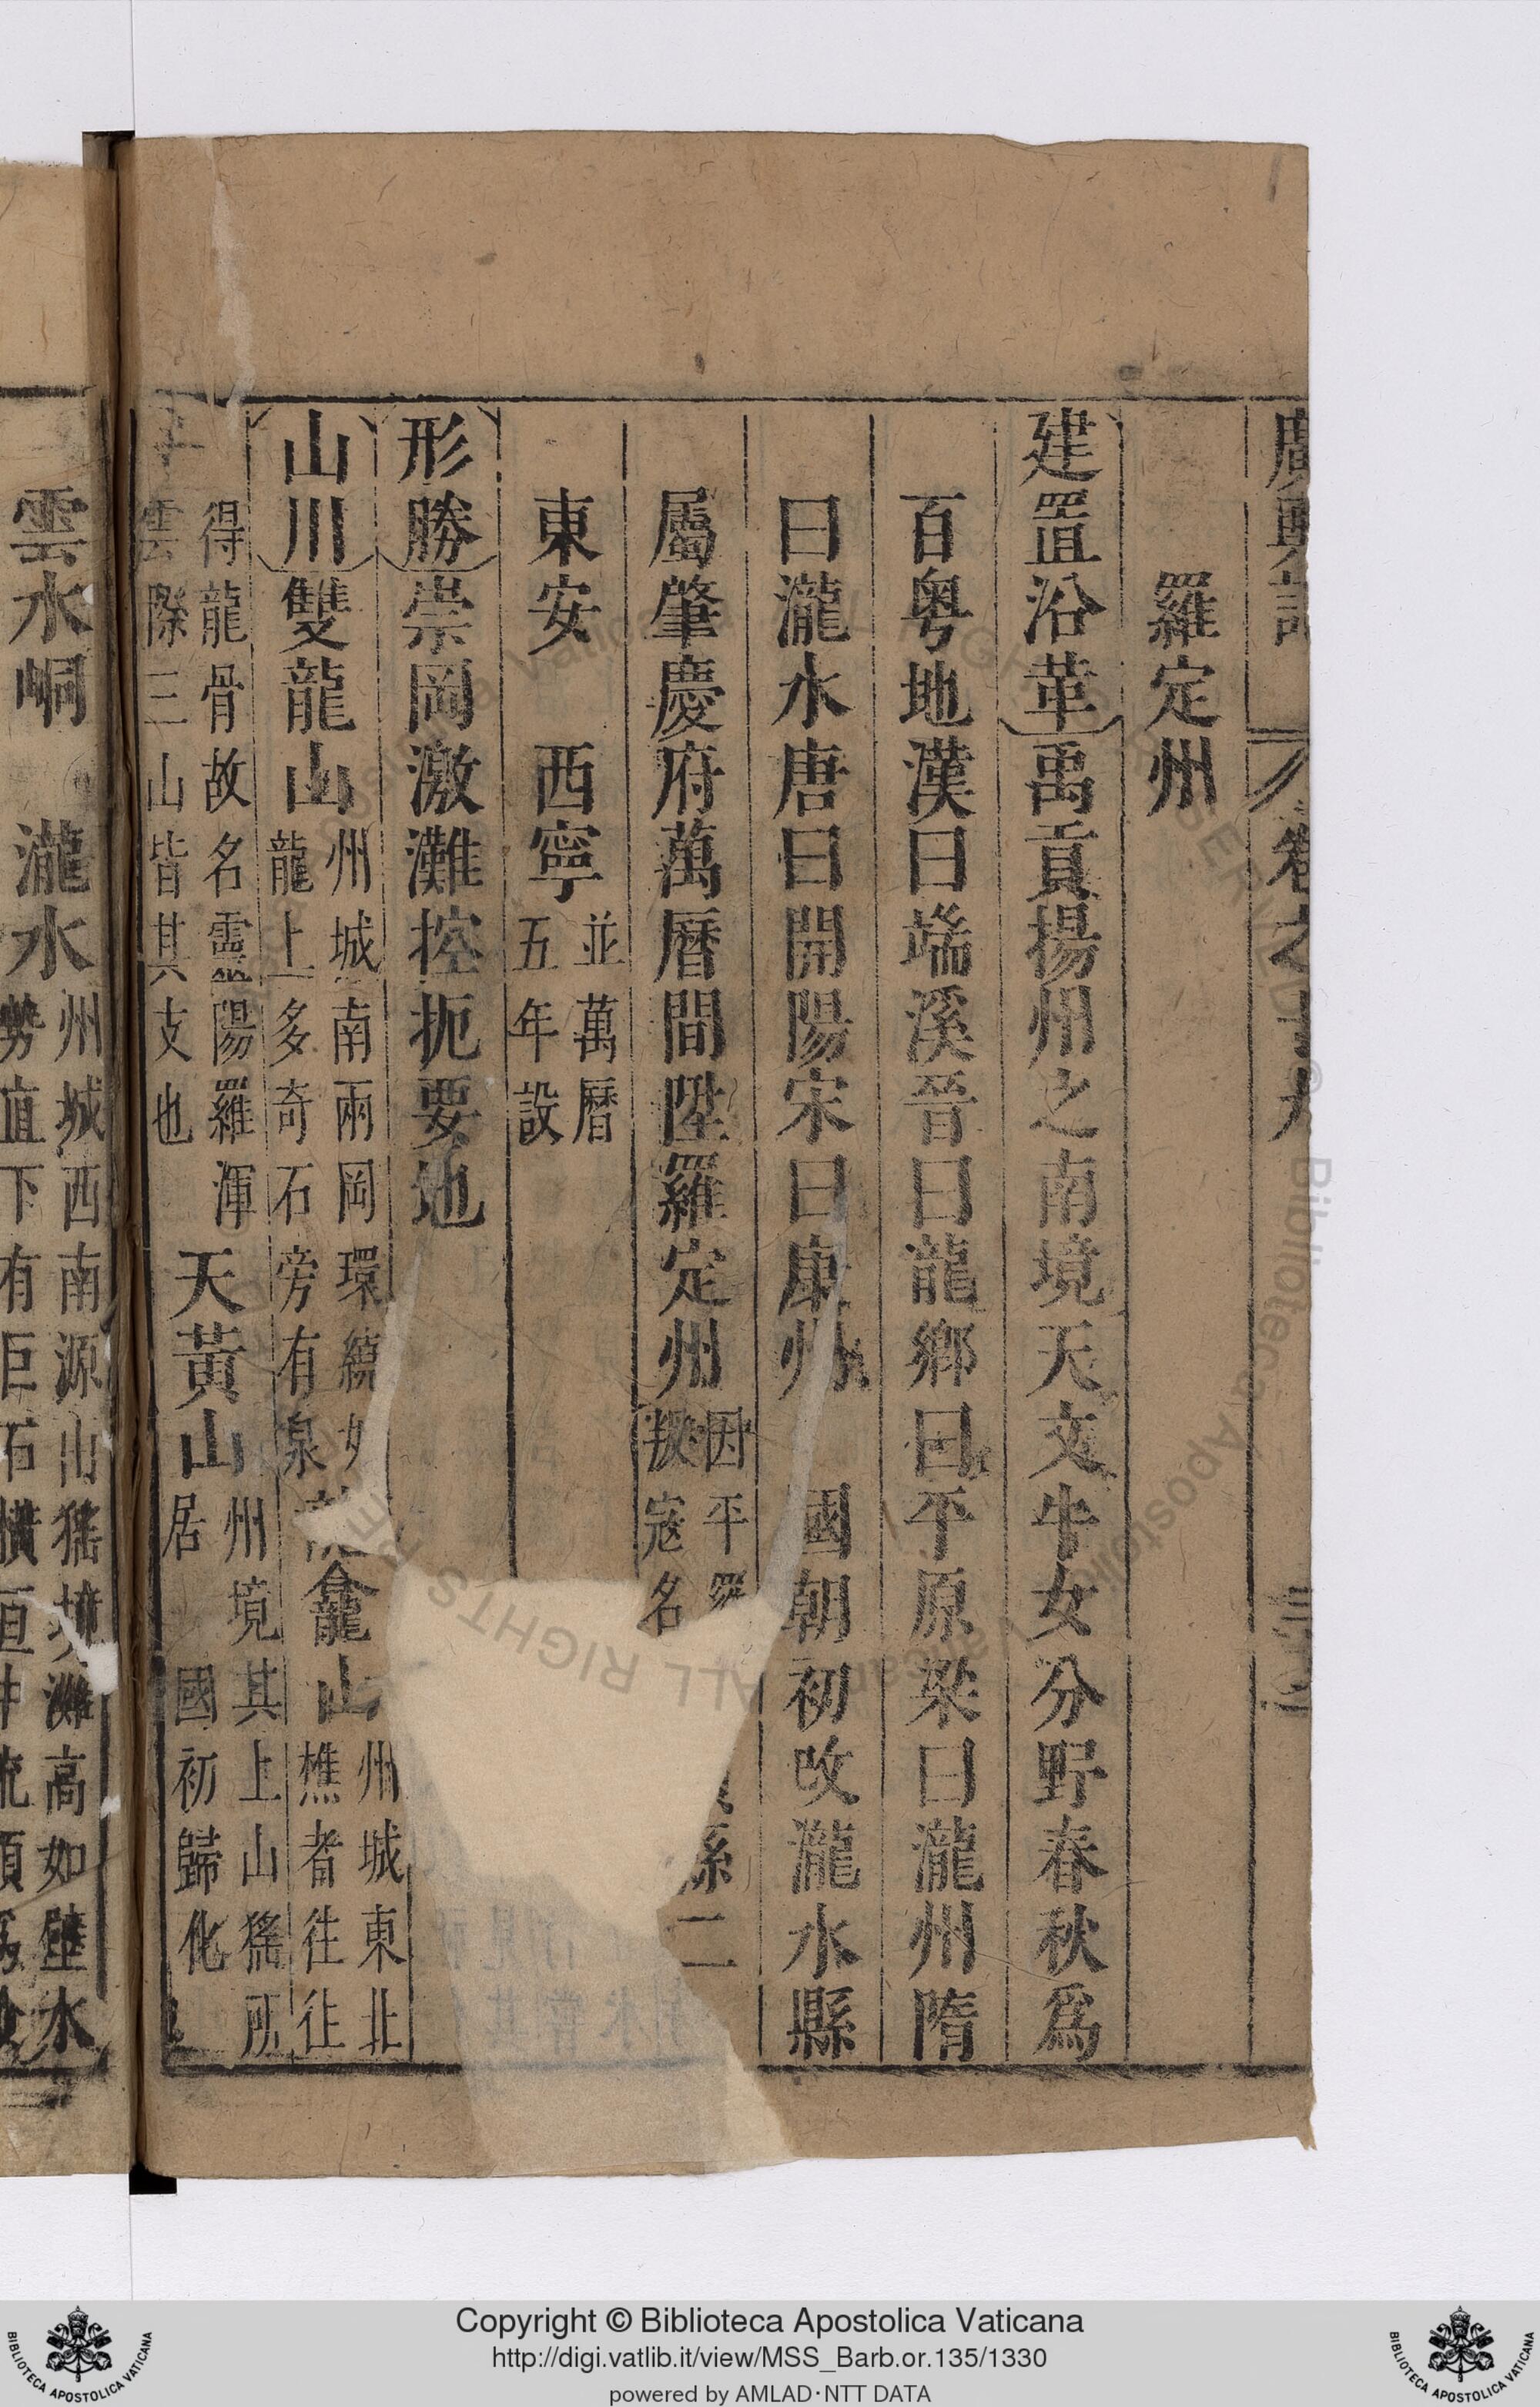 廣輿記 卷之十九
羅定州
建置沿革禹貢揚州之南境天文牛女分野春秋爲
百粤地漢曰端溪晉曰龍鄉曰平原梁曰瀧州隋
曰瀧水唐曰開陽宋曰康州 國朝初改瀧水縣
屬肇慶府萬曆間陞羅定州因平羅
叛寇名
縣二
東安 西寧並萬曆
五年設
形勝崇岡激灘控扼要地
山川雙龍山州城南兩岡環繞
龍上多奇石旁有泉
龍龕山州城東北
樵者往往
得龍骨故名靈陽羅渾
雲際三山皆其支也
天黃山州境其上山猺所
居 國初歸化
雲水峒 瀧水州城西南源出猺境灘高如壁水
勢直下有巨石橫亘中流
Copyright © Biblioteca Apostolica Vaticana
http://digi.vatlib.it/view/MSS_Barb.or.135/1330
powered by AMLAD·NTT DATA
BIBLIOTECA APOSTOLICA VATICANA
BIBLIOTECA APOSTOLICA VATICANA